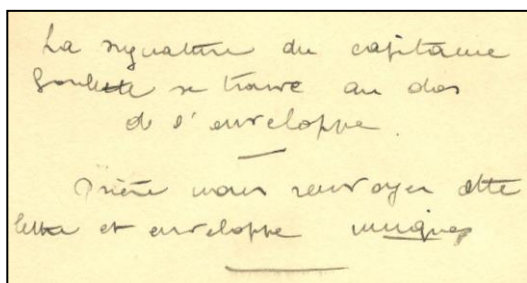 La signature du capitaine
se trouve au dos
de l'enveloppe.
Prière nous renvoyer cette
lettre et enveloppe uniques